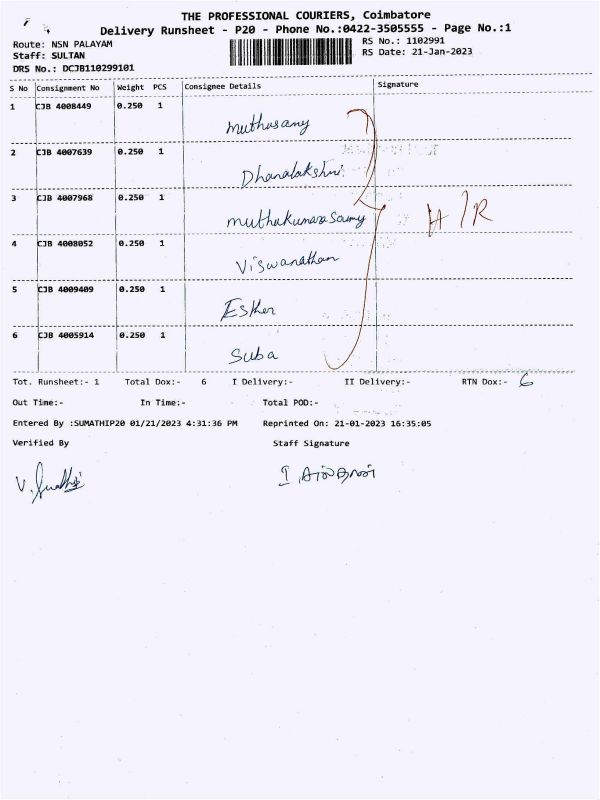 THE PROFESSIONAL COURIERS, Coimbatore
Delivery Runsheet - P20 - Phone No.:0422-3505555 - Page No.:1
Route: NSN PALAYAM
RS No.: 1102991
Staff: SULTAN
RS Date: 21-Jan-2023
DRS No.: DCJB110299101
S No Consignment No Weight PCS Consignee Details Signature
1 CJB 4008449 0.250 1
Muthusamy
2 CJB 4007639 0.250 1
Dhanalakshmi
3 CJB 4007968 0.250 1
Muthukumarasamy
H/R
4 CJB 4008052 0.250 1
Viswanathan
5 CJB 4009409 0.250 1
Esther
6 CJB 4005914 0.250 1
Suba
Tot. Runsheet:- 1 Total Dox:- 6 I Delivery:- II Delivery:- RTN Dox:- 6
Out Time:- In Time:- Total POD:-
Entered By :SUMATHIP20 01/21/2023 4:31:36 PM Reprinted On: 21-01-2023 16:35:05
Verified By Staff Signature